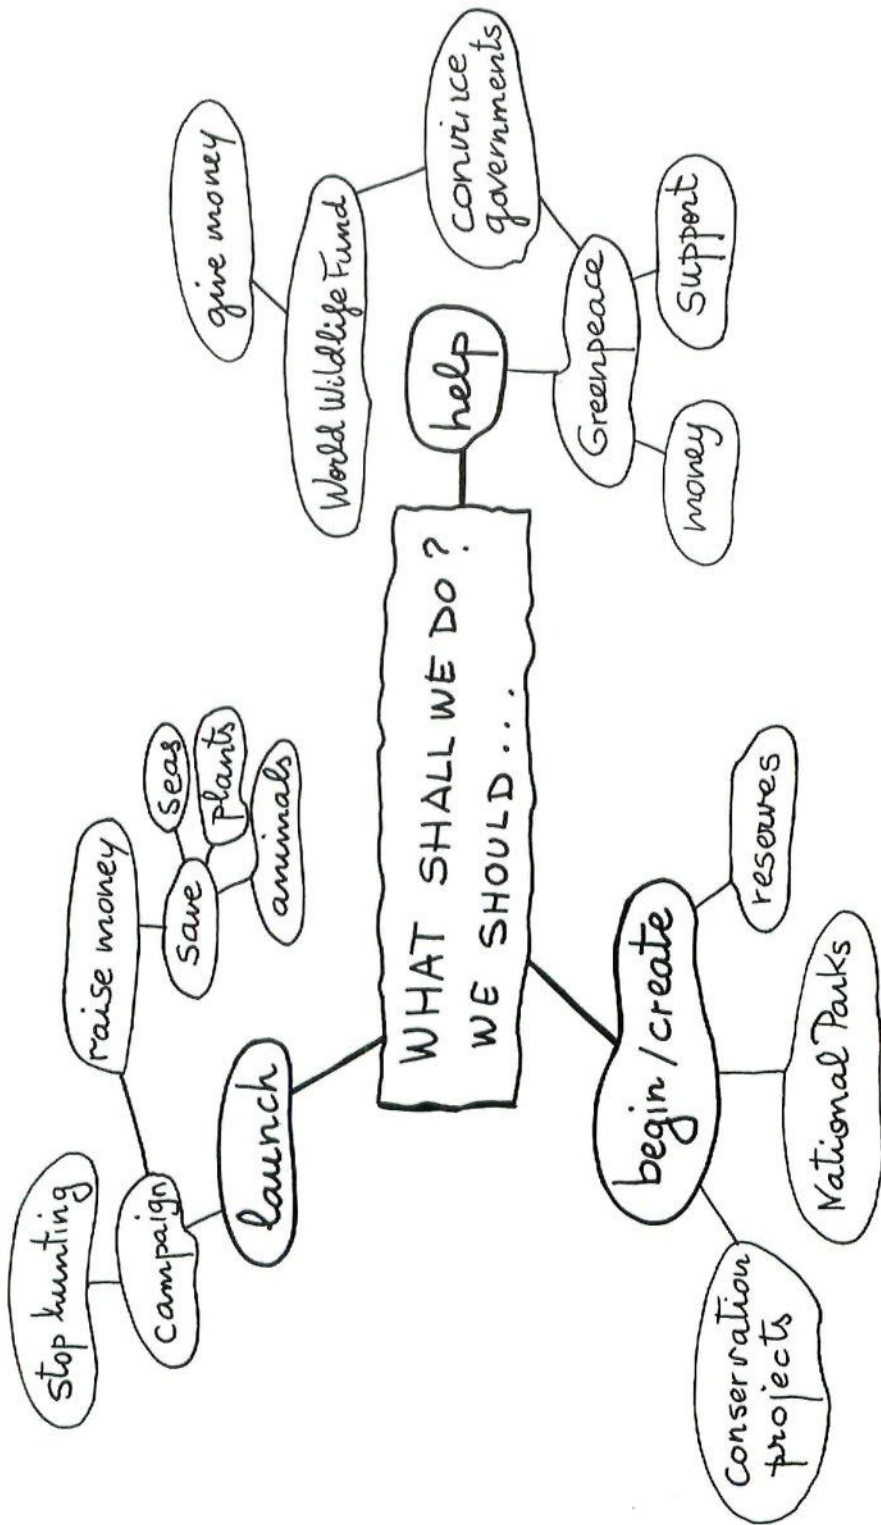 WHAT SHALL WE DO?
WE SHOULD....
launch
campaign
stop hunting
raise money
save
seas
plants
animals
help
World Wildlife Fund
give money
convince
governments
Greenpeace
support
money
begin/create
conservation
projects
National Parks
reserves